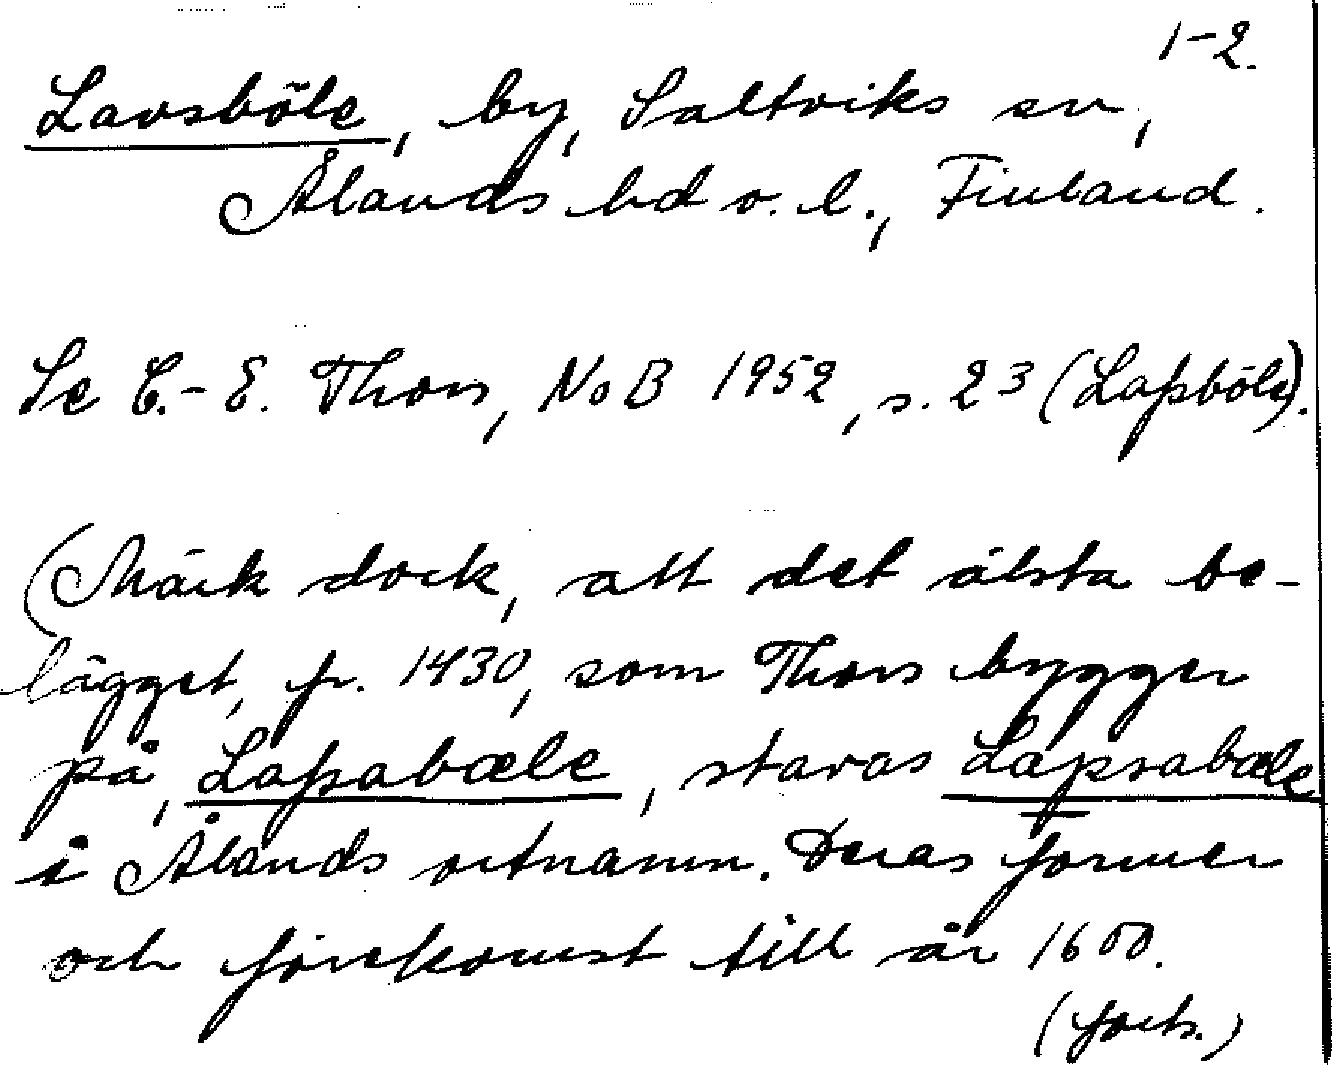 1-2.
Lavsböle, by, Saltviks sn,
Ålands hd o. l., Finland.
Se C.-E. Thors, NoB 1952, s. 23 (Lapsböle).
(Märk dock, att det älsta be-
lägget, fr. 1430, som Thors bygger
på, Lapsabœle, stavas Lapsabœle
i Ålands ortnamn. Deras former
och förekomst till år 1600.
(forts.)